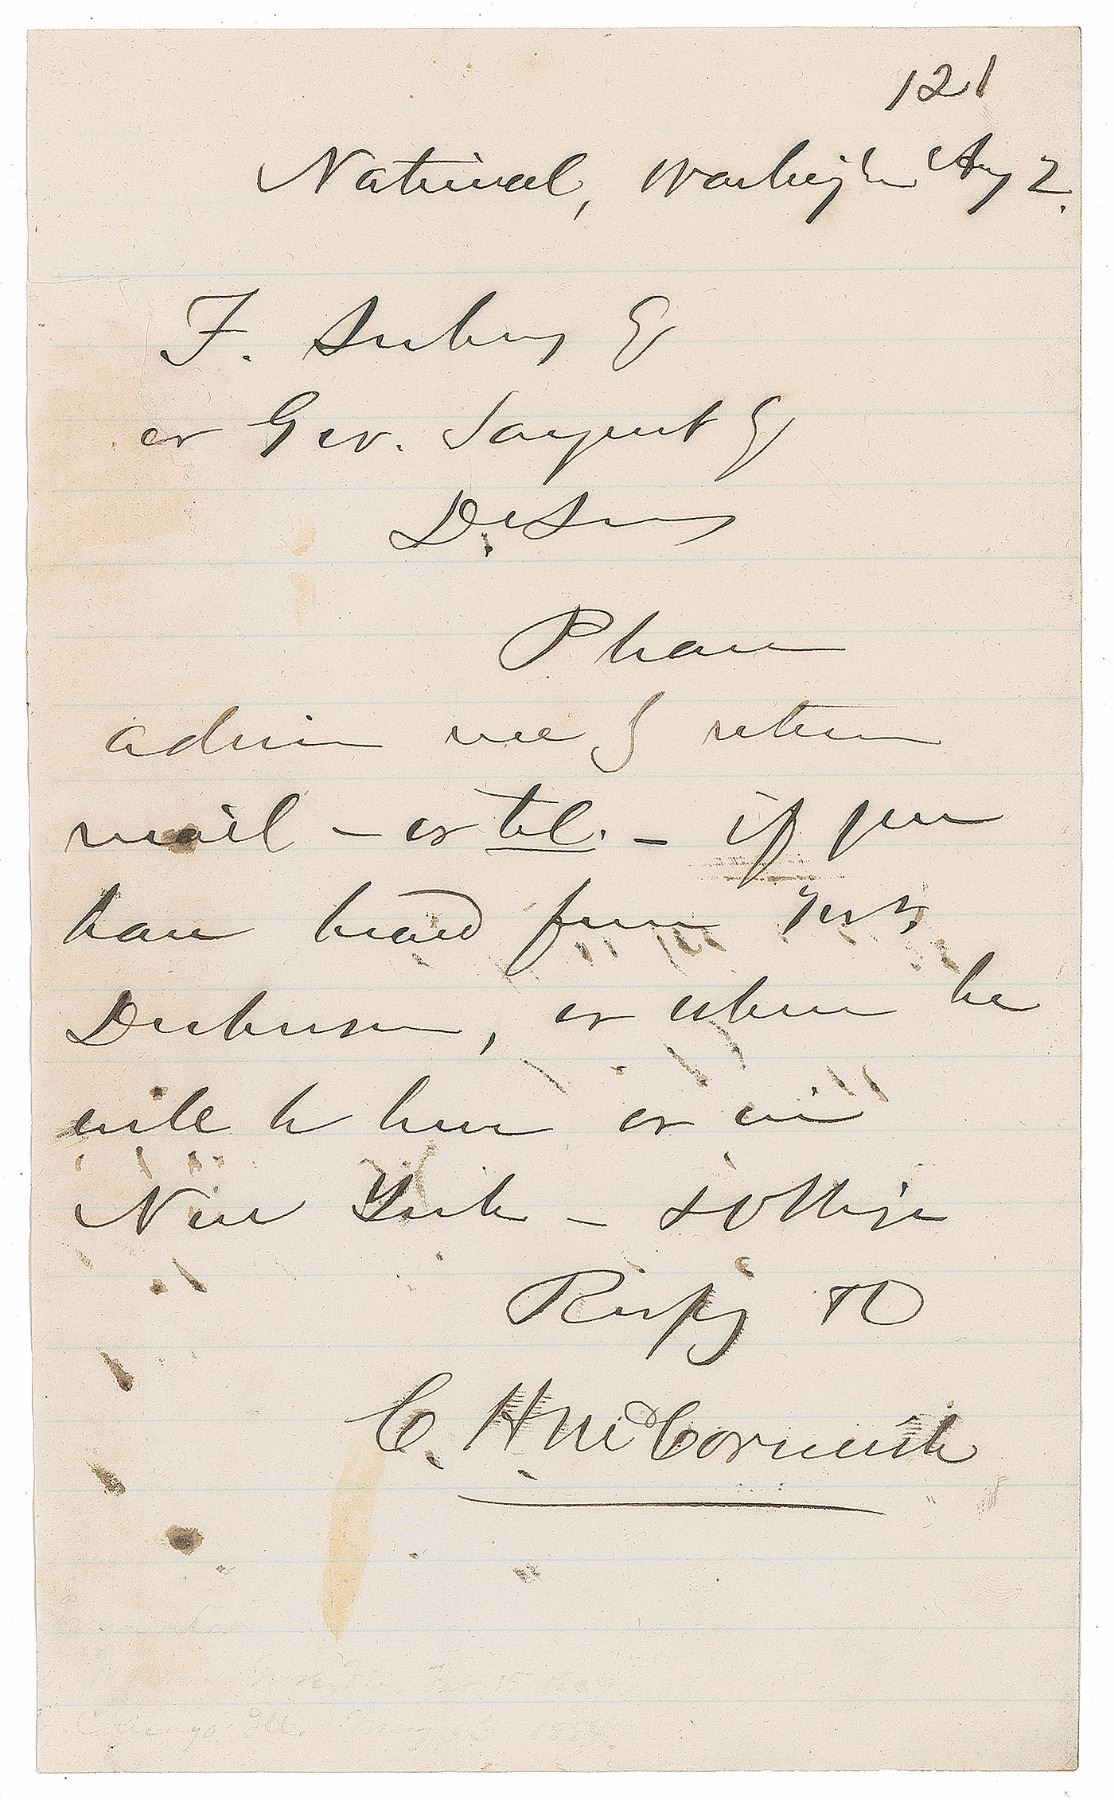 121
National, Washington Aug 2.
F.
or Geo. Sargent Esq
Dr Sirs
Please
advise me by return
mail – or tel. – if you
have heard from
Dickerson, or when he
will be here or in
New York – & oblige
Respy Yo
C. H McCormick
Feb 15 1809
Chicago Ill. May 13 1884